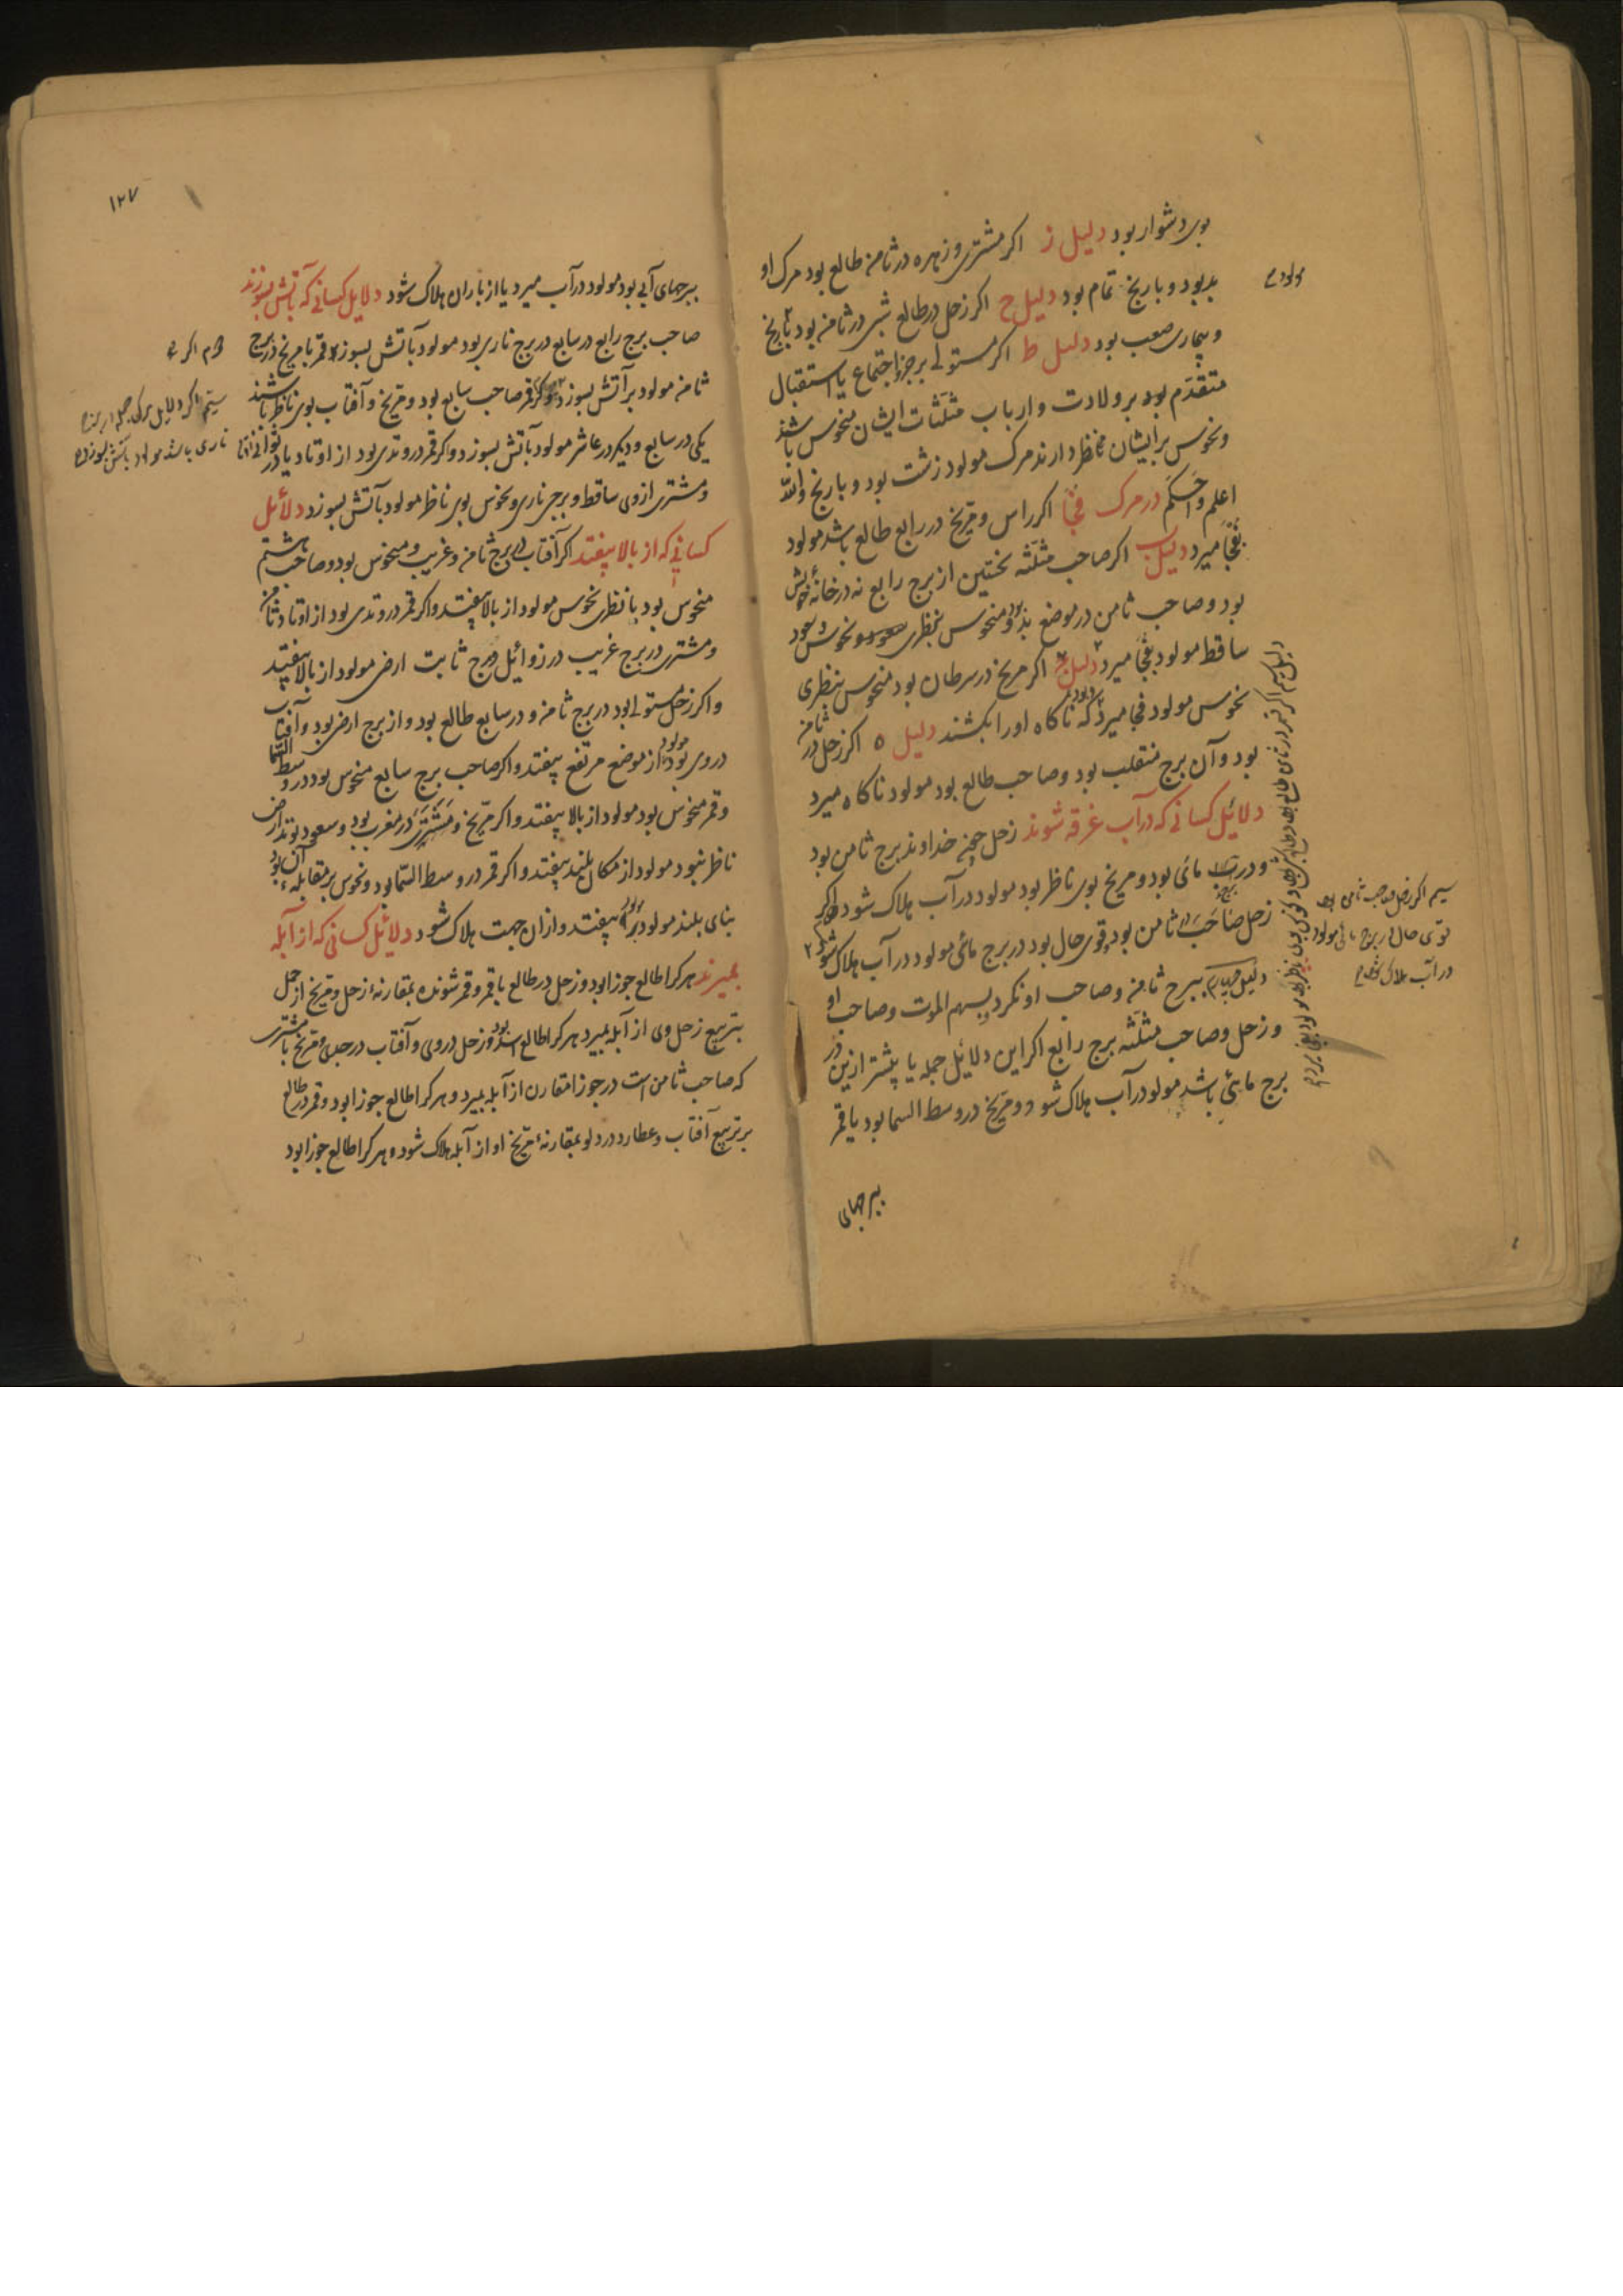 بوی دشوار بود دلیل ز اکر مشتری و زهره در ثامنه طالع بود مرک او
بد بود و بارنج تمام بود دلیل ح اکر زحل در طالع شبی در ثامنه بود بارنج
و بیماری صعب بود دلیل ط اکر مستولی بر جزو اجتماع یا استقبال
متقدم بود بر ولادت و ارباب مثلثات ایشان منحوس باشند
و نحوس برایشان نظر دارند مرک مولود زشت بود و بارنج والله
اعلم و احکم در مرک فجا اکر راس و مریخ در رابع طالع باشد مولود
بفجا میرد دلیل ب اکر صاحب مثلثه نخستین از برج رابع نه در خانهٔ خویش
بود و صاحب ثامن در موضع بد بود و منحوس بنظری نحوس و سعود
ساقط مولود بفجا میرد دلیل اکر مریخ در سرطان بود منحوس بنظری
نحوس مولود فجا میرد که ناکاه اورا بکشند دلیل ه اکر زحل در ثامنه
بود و آن برج منقلب بود و صاحب طالع بود مولود ناکاه میرد
دلائل کسانی که در آب غرقه شوند زحل چون خداوند برج ثامن بود
و در برج مائی بود و مریخ بوی ناظر بود مولود در آب هلاک شود اکر
زحل صاحب ثامن بود قوی حال بود در برج مائی مولود در آب هلاک شود
دلیل ببرج ثامنه و صاحب او نکرد بسهم الموت و صاحب او
و زحل و صاحب مثلثه برج رابع اکر این دلائل جمله یا بیشتر ازین در
برج مائی باشد مولود در آب هلاک شود و مریخ در وسط السما بود یا قمر
ببرجهای
مولود
سیم اکر زحل صاحب ثامن بود
قوی حال در برج مائی مولود
در آب هلاک شود
۱۲۷
ببرجهای آبی بود مولود در آب میرد یا از باران هلاک شود دلایل کسانی که بآتش بسوزند
صاحب برج رابع در سابع در برج ناری بود مولود بآتش بسوزد قمر با مریخ در برج
ثامنه مولود بر آتش بسوزد و کر قمر صاحب سابع بود و مریخ و آفتاب بوی ناظر باشند
یکی در سابع و دیکر در عاشر مولود بآتش بسوزد و اکر قمر در وتدی بود از اوتاد یا در
و مشتری ازوی ساقط و برجی ناری و نحوس بوی ناظر مولود بآتش بسوزد دلائل
کسانی که از بالا بیفتند اکر آفتاب در برج ثامنه و غریب و منحوس بود و صاحب هشتم
منحوس بود بانظری نحوس مولود از بالا بیفتد و اکر قمر در وتدی بود از اوتاد ثامنه
و مشتری در برج غریب در زوائل و برج ثابت ارض مولود از بالا بیفتد
و اکر زحل مستولی بود در برج ثامنه و در سابع طالع بود و از برج ارض بود و آفتاب
در وی بود مولود از موضع مرتفع بیفتد و اکر صاحب برج سابع منحوس بود در وسط السما
و قمر منحوس بود مولود از بالا بیفتد و اکر مریخ و مشتری در مغرب بود و سعود
ناظر نبود مولود از مکان بلند بیفتد و اکر قمر در وسط السما بود و نحوس بر مقابله آن بود
بنای بلند مولود بیفتد و ازان جهت هلاک شود دلائل کسانی که از آبله
بمیرند هر کرا طالع جوزا بود و زحل در طالع با قمر و قمر شونده بمقارنهٔ زحل و مریخ از حمل
بتربیع زحل وی از آبله بمیرد هر کرا طالع اسد بود و زحل در وی و آفتاب در جدی و مریخ با مشتری
که صاحب ثامن است در جوزا مقارن از آبله بمیرد و هر کرا طالع جوزا بود و قمر در طالع
بر تربیع آفتاب و عطارد در دلو بمقارنهٔ مریخ او از آبله هلاک شود و هر کرا طالع جوزا بود